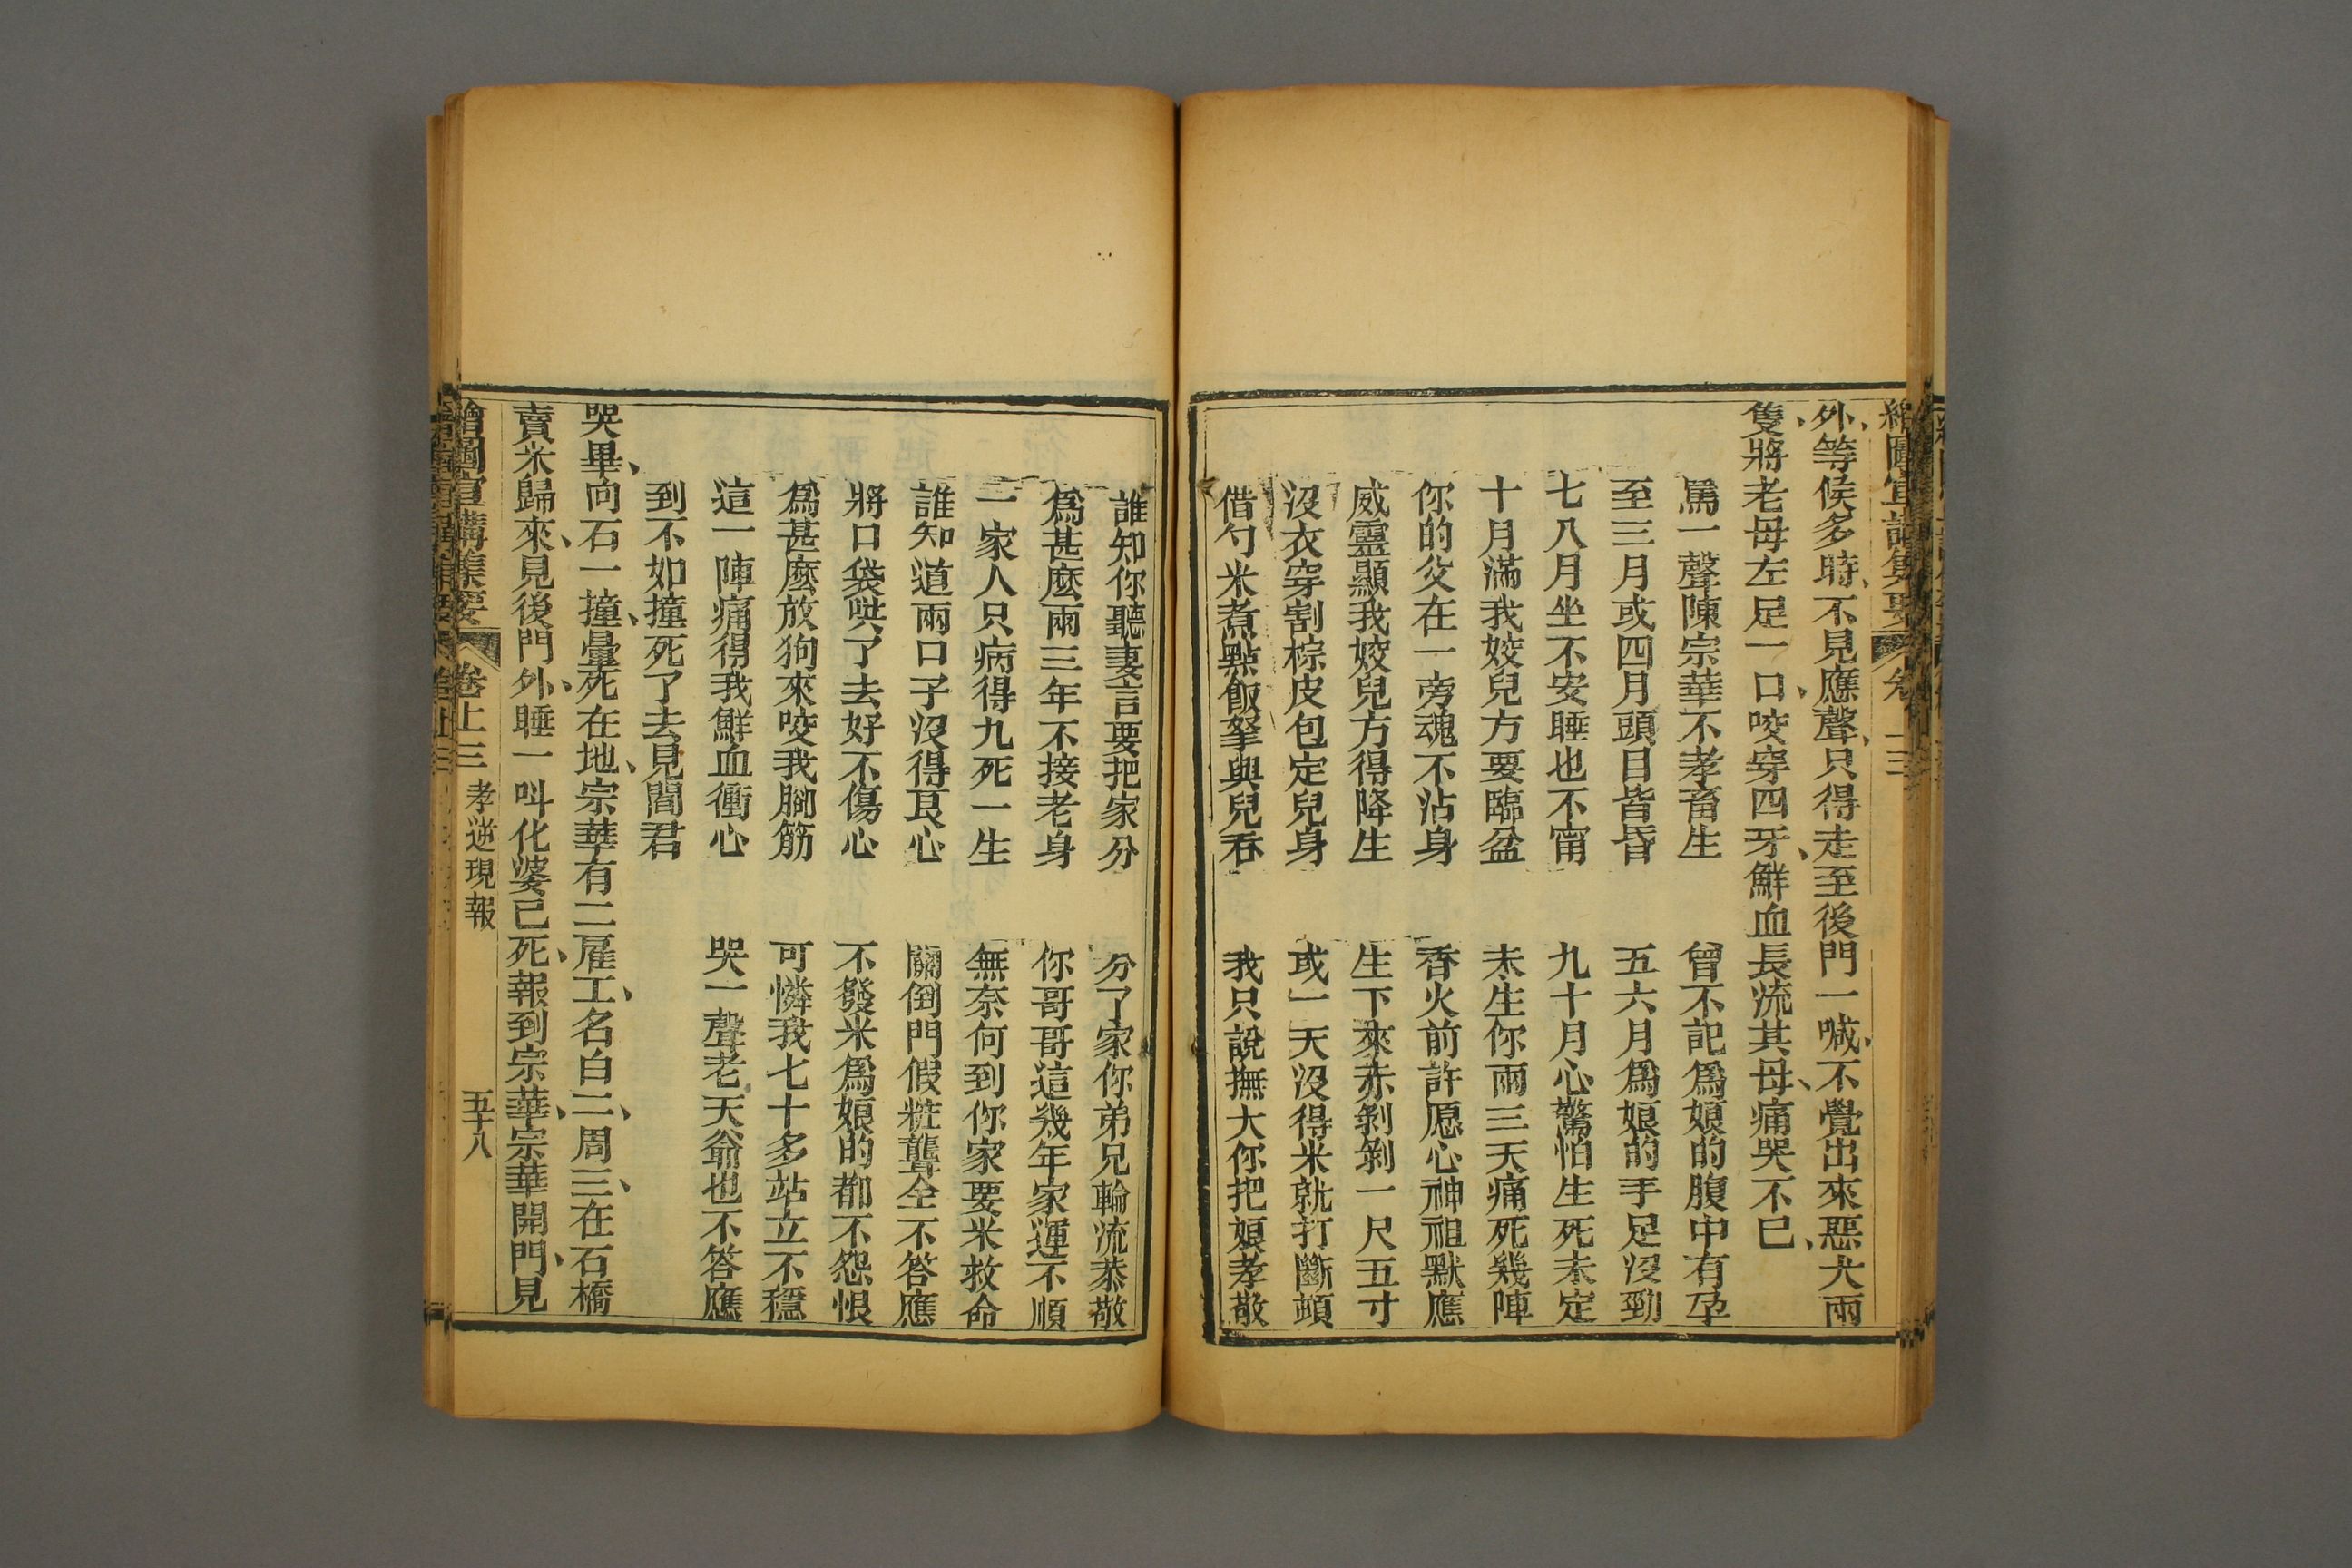 外等侯多時不見應聲只得走至後門一喊不覺出來惡犬兩
隻將老母左足一口咬穿四牙鮮血長流其母痛哭不已
罵一聲陳宗華不孝畜生 曾不記爲娘的腹中有孕
至三月或四月頭目皆昏 五六月爲娘的手足沒勁
七八月坐不安睡也不甯 九十月心驚怕生死未定
十月滿我姣兒方要臨盆 未生你兩三天痛死幾陣
你的父在一旁魂不沾身 香火前許愿心神祖默應
威靈顯我姣兒方得降生 生下來赤剝剝一尺五寸
沒衣穿割棕皮包定兒身 或一天沒得米就打斷頓
借勺米煮點飯拏與兒吞 我只說撫大你把娘孝敬
誰知你聽妻言要把家分 分了家你弟兄輪流恭敬
爲甚麽兩三年不接老身 你哥哥這幾年家運不順
一家人只病得九死一生 無奈何到你家要米救命
誰知道兩口子沒得良心 關倒門假粧聾全不答應
將口袋哄了去好不傷心 不發米爲娘的都不怨恨
爲甚麽放狗來咬我腳筋 可憐我七十多站立不穩
這一陣痛得我鮮血衝心 哭一聲老天爺也不答應
到不如撞死了去見閻君
哭畢向石一撞暈死在地宗華有二雇工名白二周三在石橋
賣米歸來見後門外睡一叫化婆已死報到宗華宗華開門見
繪圖宣講集要 卷上三 孝逆現報 五十八